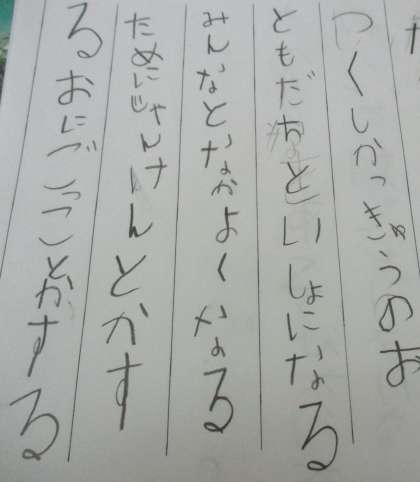 つくしかっぎゅうのお
ともだちといしょになる
みんなとなかよくなる
ためにじゃんけんとかす
るおにごっことかする